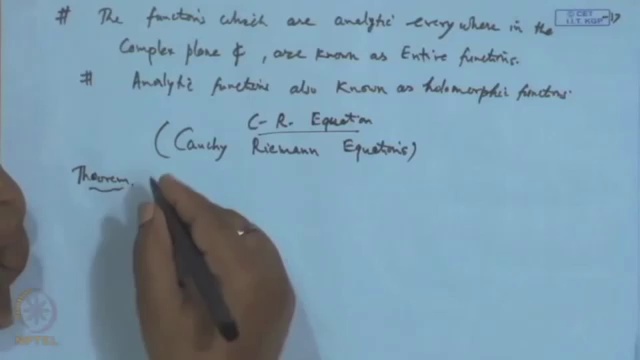 © CET
I.I.T. KGP
# The functions which are analytic everywhere in the
Complex plane ₵, are known as Entire functions.
# Analytic functions also known as holomorphic functions.
C-R. Equation
(Cauchy Riemann Equations)
Theorem.
NPTEL